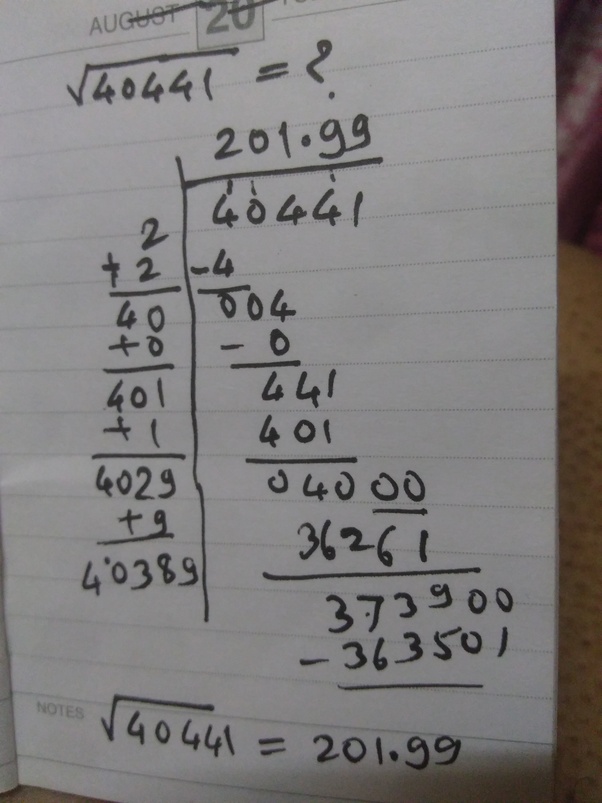 AUGUST 20
√40441 = ?
201.99
40441
2
+2 -4
40 004
+0 - 0
401 441
+1 401
4029 04000
+9 36261
40389 373900
-363501
NOTES
√40441 = 201.99